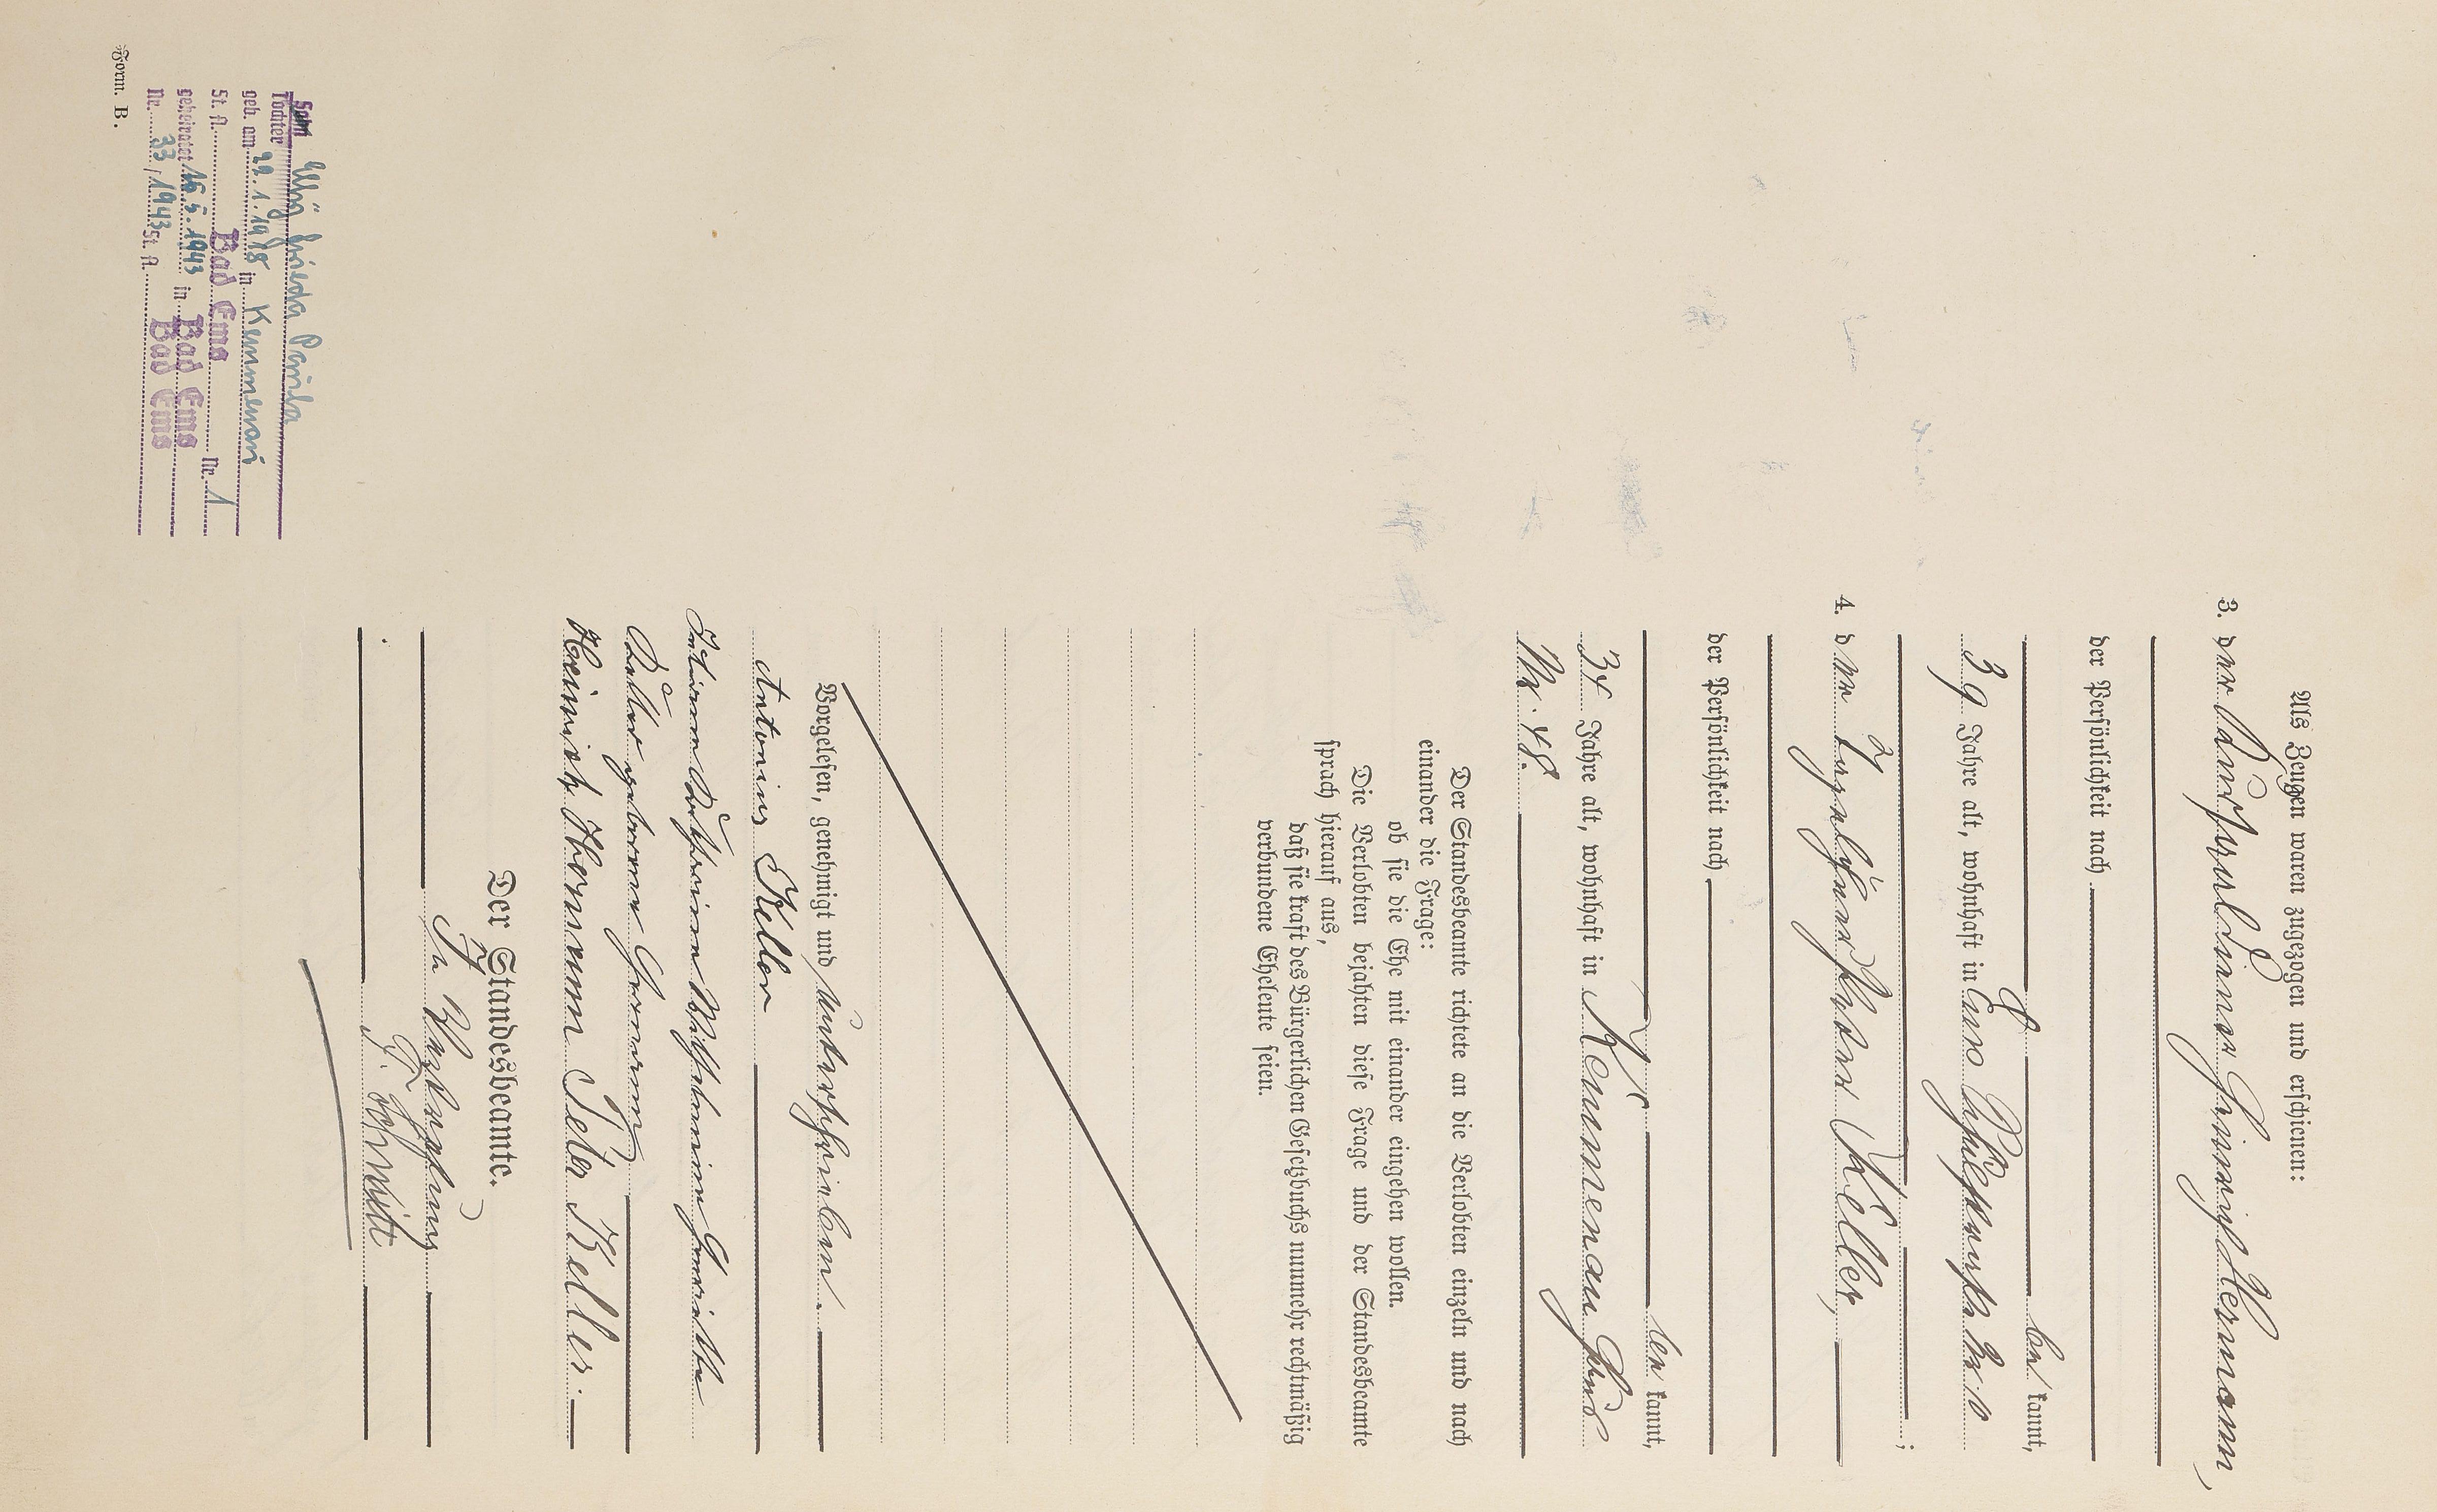 Als Zeugen waren zugezogen und erschienen:
3. der Heinrich Hermann,
der Persönlichkeit nach
be kannt,
39 Jahre alt, wohnhaft in Ems No 10
4. der Tagelöhner Peter Keller,
der Persönlichkeit nach
be kannt,
34 Jahre alt, wohnhaft in Kemmenau Haus
Nr. 48.
Der Standesbeamte richtete an die Verlobten einzeln und nach
einander die Frage:
ob sie die Ehe mit einander eingehen wollen.
Die Verlobten bejahten diese Frage und der Standesbeamte
sprach hierauf aus,
daß sie kraft des Bürgerlichen Gesetzbuchs nunmehr rechtmäßig
verbundene Eheleute seien.
Vorgelesen, genehmigt und unterschrieben.
Antonius Keller
Wilhelmine Henriette
Keller geborene Hermann
Heinrich Hermann Peter Keller.
Der Standesbeamte.
In Vertretung
Schmitt
Sohn
Tochter Elly Frieda Paula
geb. am 22.1.1918 in Kemmenau
St. A. Bad Ems Nr. 1
geheiratet 15.5.1943 in Bad Ems
Nr. 33/1943 St. A. Bad Ems
Form. B.